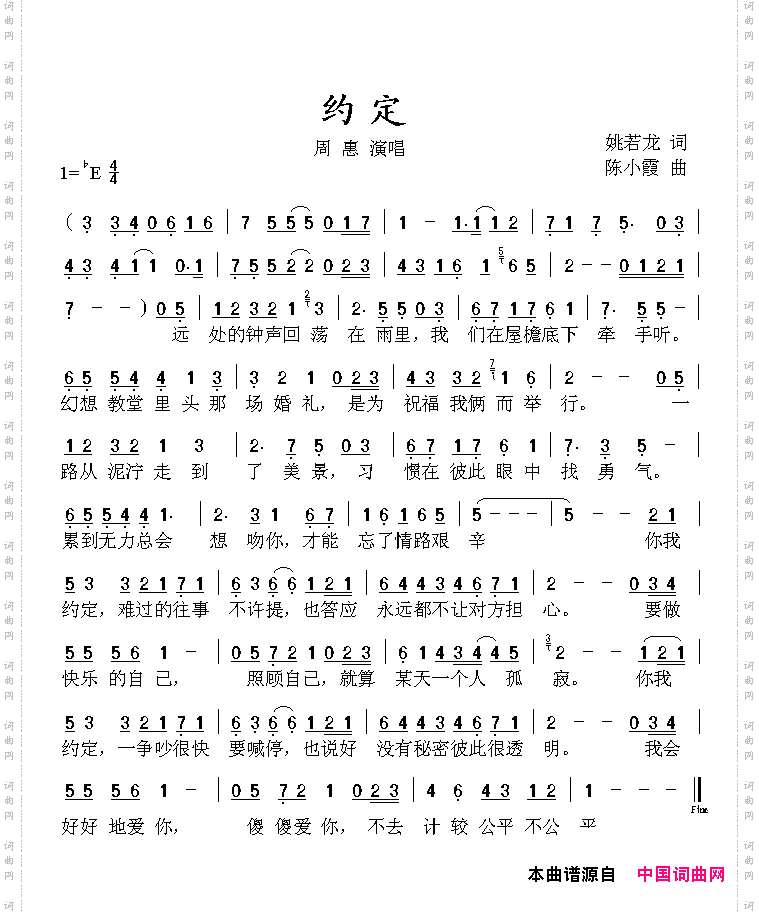 约定
周 惠 演唱
姚若龙 词
陈小霞 曲
1=♭E 4/4
( 3 3 4 0 6 1 6 | 7 5 5 5 0 1 7 | 1 - 1· 1 1 2 | 7 1 7 5· 0 3 |
4 3 4 1 1 0·1 | 7 5 5 2 2 0 2 3 | 4 3 1 6 1 5 6 5 | 2 - - 0 1 2 1 |
7 - - ) 0 5 | 1 2 3 2 1 2 3 | 2· 5 5 0 3 | 6 7 1 7 6 1 | 7· 5 5 - |
远 处的钟声回 荡 在 雨里，我 们在屋檐底下 牵 手听。
6 5 5 4 4 1 3 | 3 2 1 0 2 3 | 4 3 3 2 7 1 6 | 2 - - 0 5 |
幻想 教堂 里 头那 场 婚 礼， 是为 祝福 我俩 而 举 行。 一
1 2 3 2 1 3 | 2· 7 5 0 3 | 6 7 1 7 6 1 | 7· 3 5 - |
路从 泥泞 走 到 了 美 景，习 惯在 彼此 眼 中 找 勇 气。
6 5 5 4 4 1· | 2· 3 1 6 7 | 1 6 1 6 5 | 5 - - - | 5 - - 2 1 |
累到无力总会 想 吻你，才能 忘了情路艰 辛 你我
5 3 3 2 1 7 1 | 6 3 6 6 0 1 2 1 | 6 4 4 3 4 6 7 1 | 2 - - 0 3 4 |
约定，难过的往事 不许提，也答应 永远都不让对方担 心。 要做
5 5 5 6 1 - | 0 5 7 2 1 0 2 3 | 6 1 4 3 4 4 5 | 3 2 - - 1 2 1 |
快乐 的自 己， 照顾自己，就算 某天一个人 孤 寂。 你我
5 3 3 2 1 7 1 | 6 3 6 6 0 1 2 1 | 6 4 4 3 4 6 7 1 | 2 - - 0 3 4 |
约定，一争吵很快 要喊停，也说好 没有秘密彼此很透 明。 我会
5 5 5 6 1 - | 0 5 7 2 1 0 2 3 | 4 6 4 3 1 2 | 1 - - - ‖
Fine
好好 地爱 你， 傻 傻爱 你，不去 计 较 公平 不公 平
本曲谱源自 中国词曲网